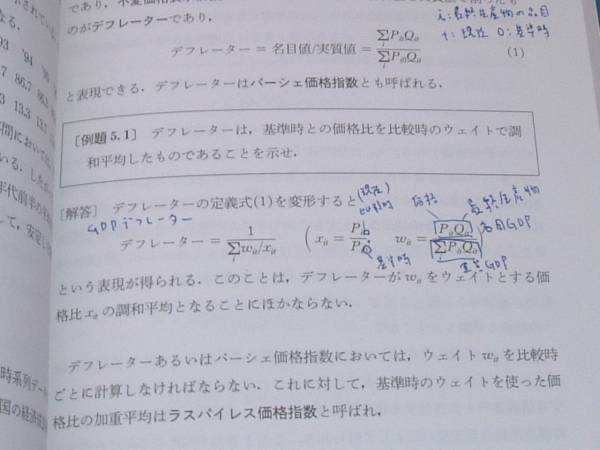 であり，不変価格表示
のがデフレーターであり，
i：最終生産物の品目
t：現在 0：基準時
デフレーター = 名目値/実質値 = ΣPitQit / ΣPi0Qit (1)
と表現できる．デフレーターはパーシェ価格指数とも呼ばれる．
［例題 5.1］ デフレーターは，基準時との価格比を比較時のウェイトで調
和平均したものであることを示せ．
［解答］ デフレーターの定義式(1)を変形すると
(現在)
比較時
価格
最終生産物
GDPデフレーター
名目GDP
デフレーター = 1 / Σwit/xit ( xit = Pit / Pi0 wit = PitQit / ΣPitQit
基準時
という表現が得られる．このことは，デフレーターが wit をウェイトとする価
格比 xit の調和平均となることにほかならない．
デフレーターあるいはパーシェ価格指数においては，ウェイト wit を比較時
ごとに計算しなければならない．これに対して，基準時のウェイトを使った価
格比の加重平均はラスパイレス価格指数と呼ばれ，
されている
93 '94 '95
7 86.7 86.
3 13.3 13.
間において
いる．した
年代前半の
して，安定し
時系列デー
国の経済